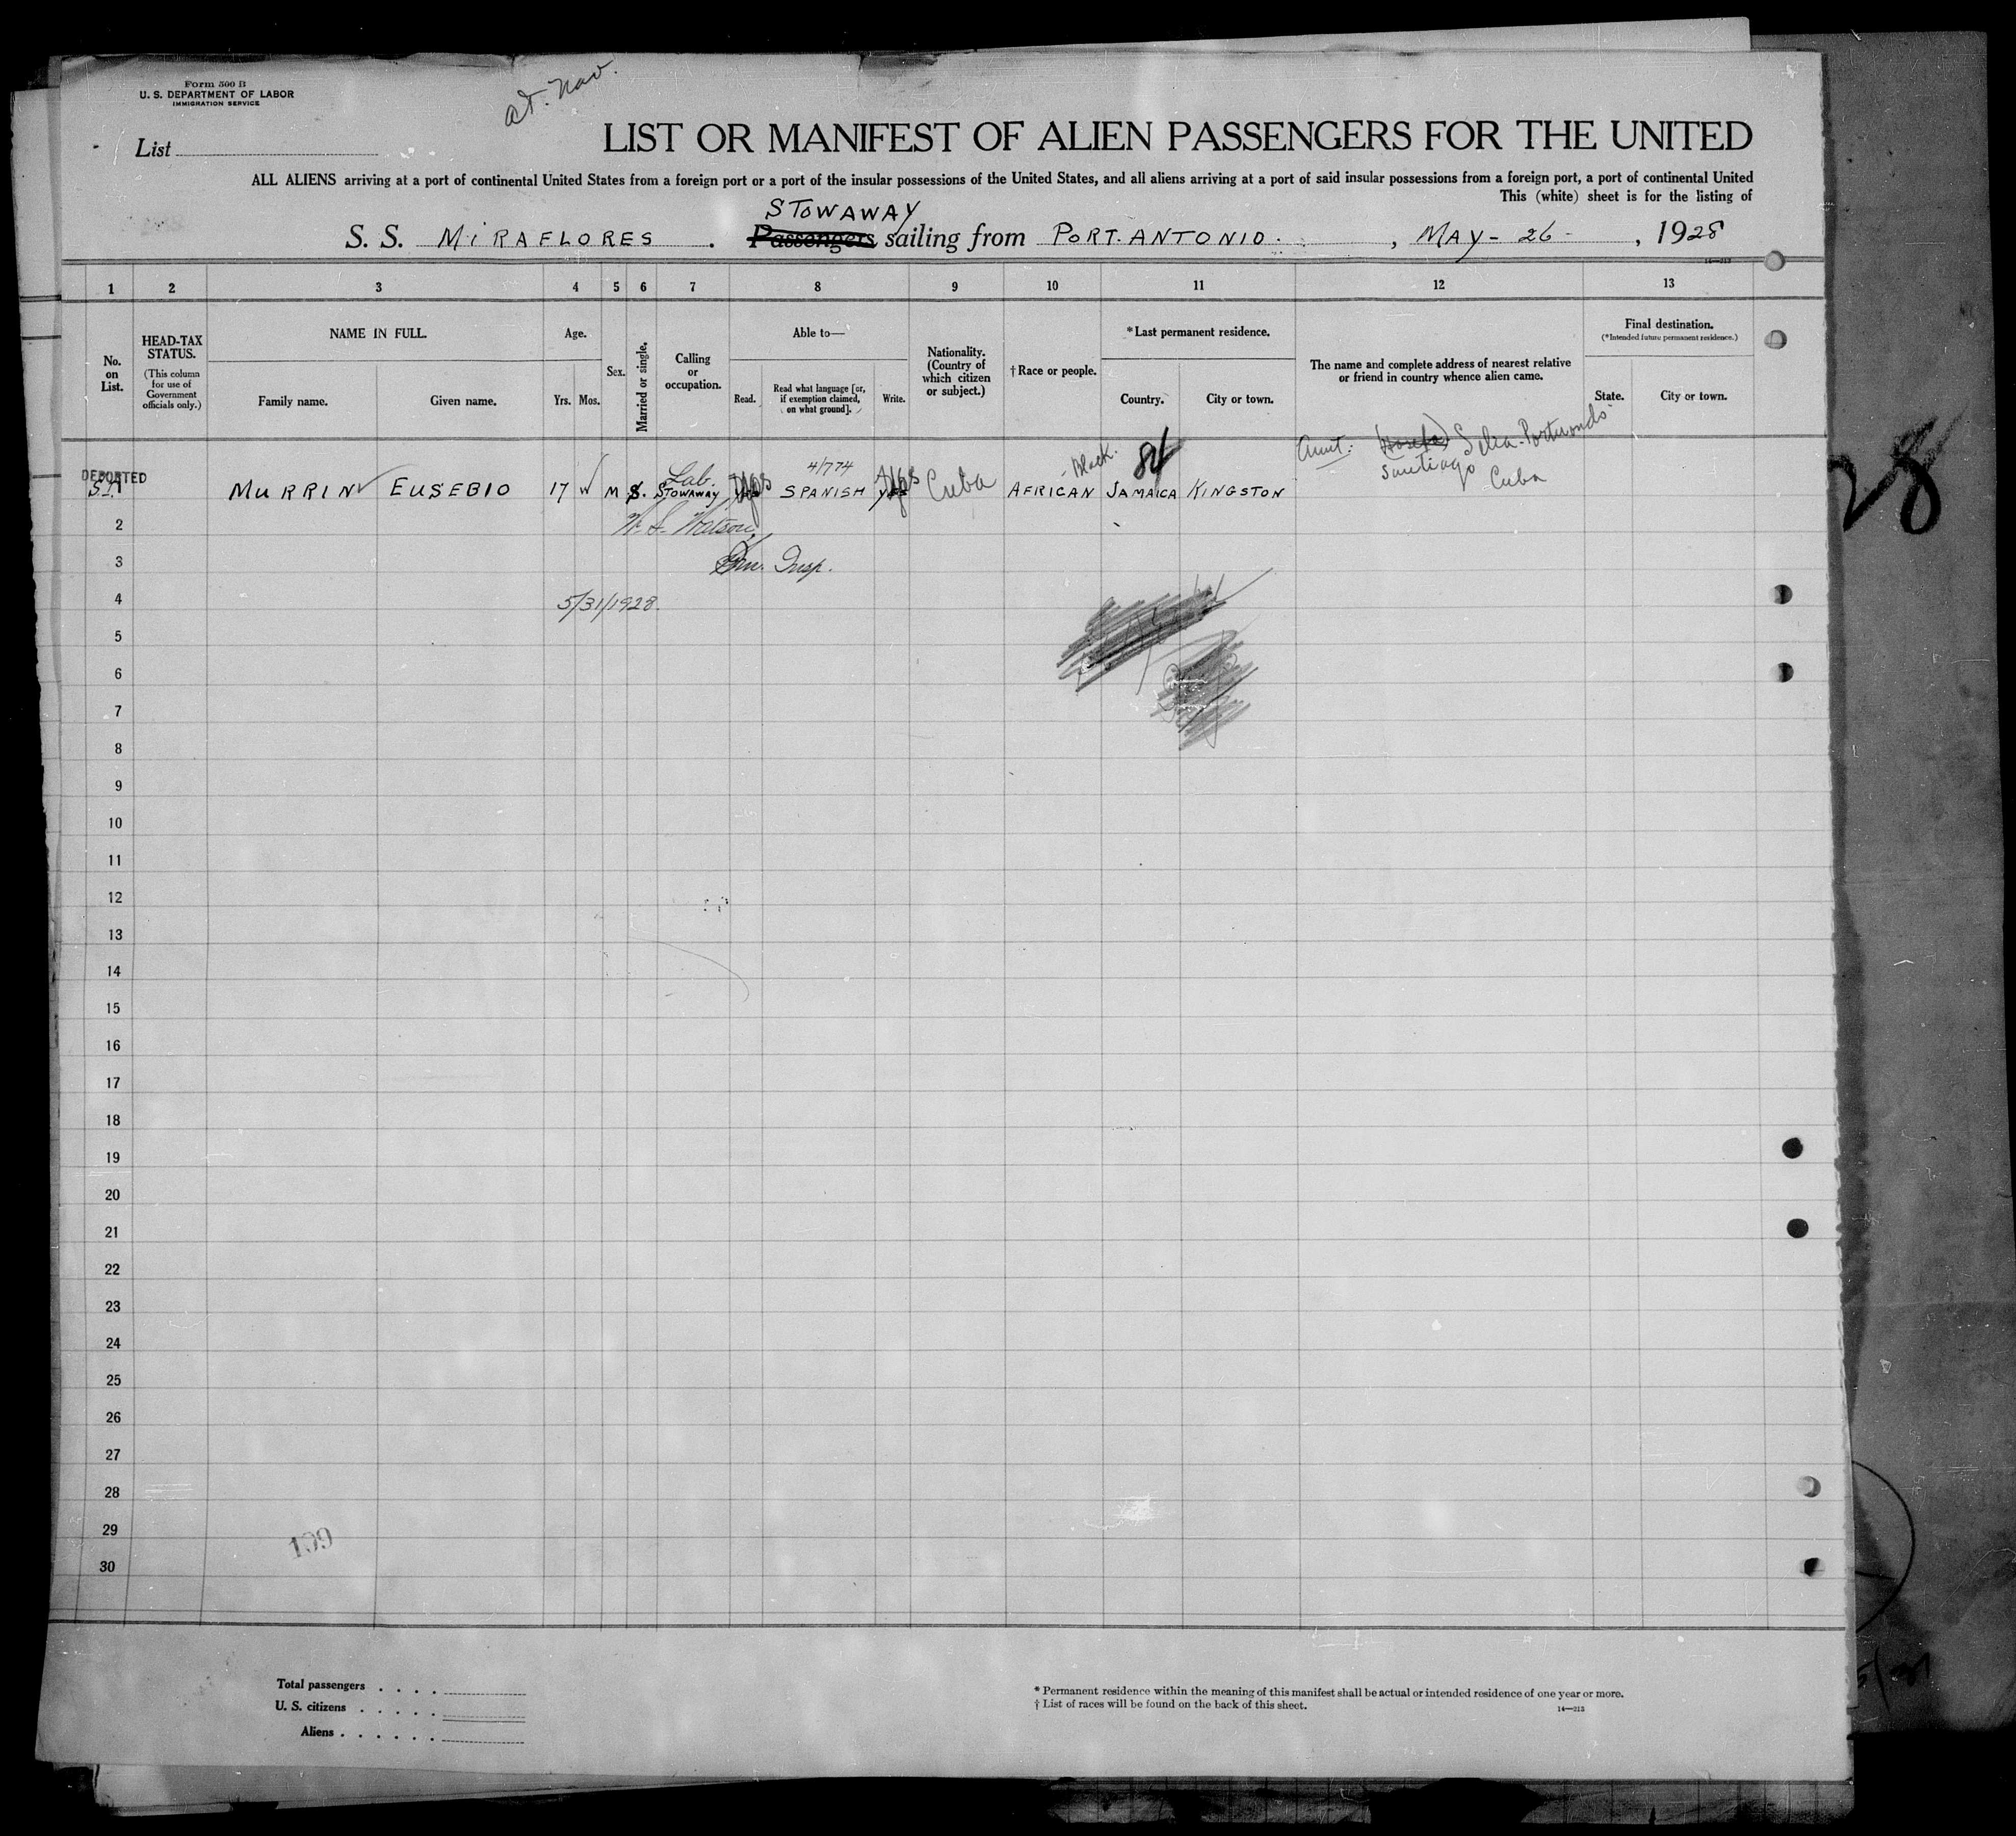 Form 500 B
U. S. DEPARTMENT OF LABOR
IMMIGRATION SERVICE
List
LIST OR MANIFEST OF ALIEN PASSENGERS FOR THE UNITED
ALL ALIENS arriving at a port of continental United States from a foreign port or a port of the insular possessions of the United States, and all aliens arriving at a port of said insular possessions from a foreign port, a port of continental United
This (white) sheet is for the listing of
STOWAWAY
S. S. MIRAFLORES . Passengers sailing from PORT. ANTONIO. , MAY - 26 - , 1928
1 2 3 4 5 6 7 8 9 10 11 12 13
No. on List.
HEAD-TAX STATUS.
(This column for use of Government officials only.)
NAME IN FULL.
Family name. Given name.
Age.
Yrs. Mos.
Sex.
Married or single.
Calling or occupation.
Able to—
Read. Read what language [or, if exemption claimed, on what ground]. Write.
Nationality. (Country of which citizen or subject.)
† Race or people.
* Last permanent residence.
Country. City or town.
The name and complete address of nearest relative or friend in country whence alien came.
Final destination.
(* Intended future permanent residence.)
State. City or town.
DEPORTED
S.I. 1 MURRIN EUSEBIO 17 M S. Lab. STOWAWAY yes SPANISH yes Cuba AFRICAN - Black. JAMAICA KINGSTON
4/774
84
Aunt: Portuondo
Santiago
Cuba
2 Watson
3 Imm. Insp.
4 5/31/1928.
5
6
7
8
9
10
11
12
13
14
15
16
17
18
19
20
21
22
23
24
25
26
27
28
29
30
199
28
Total passengers . . . .
U. S. citizens . . . . .
Aliens . . . . . .
* Permanent residence within the meaning of this manifest shall be actual or intended residence of one year or more.
† List of races will be found on the back of this sheet.
14—213